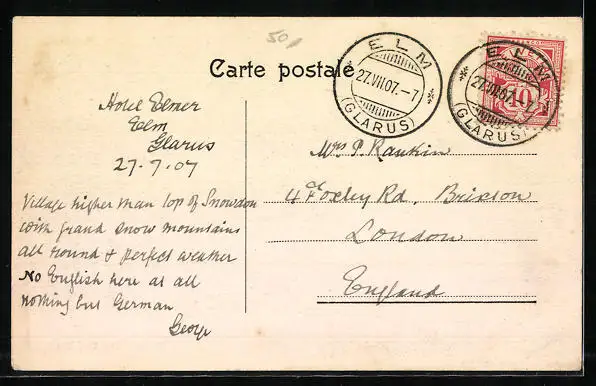 50
Carte postale
ELM
27.VII.07.-7
(GLARUS)
ELM
27.VII.07.-7
(GLARUS)
10
Hotel Elmer
Elm
Glarus
27-7-07
Village higher than top of Snowdon
with grand snow mountains
all round & perfect weather
No English here at all
nothing but German
George
Mrs P. Rankin
4 Foxley Rd, Brixton
London
England